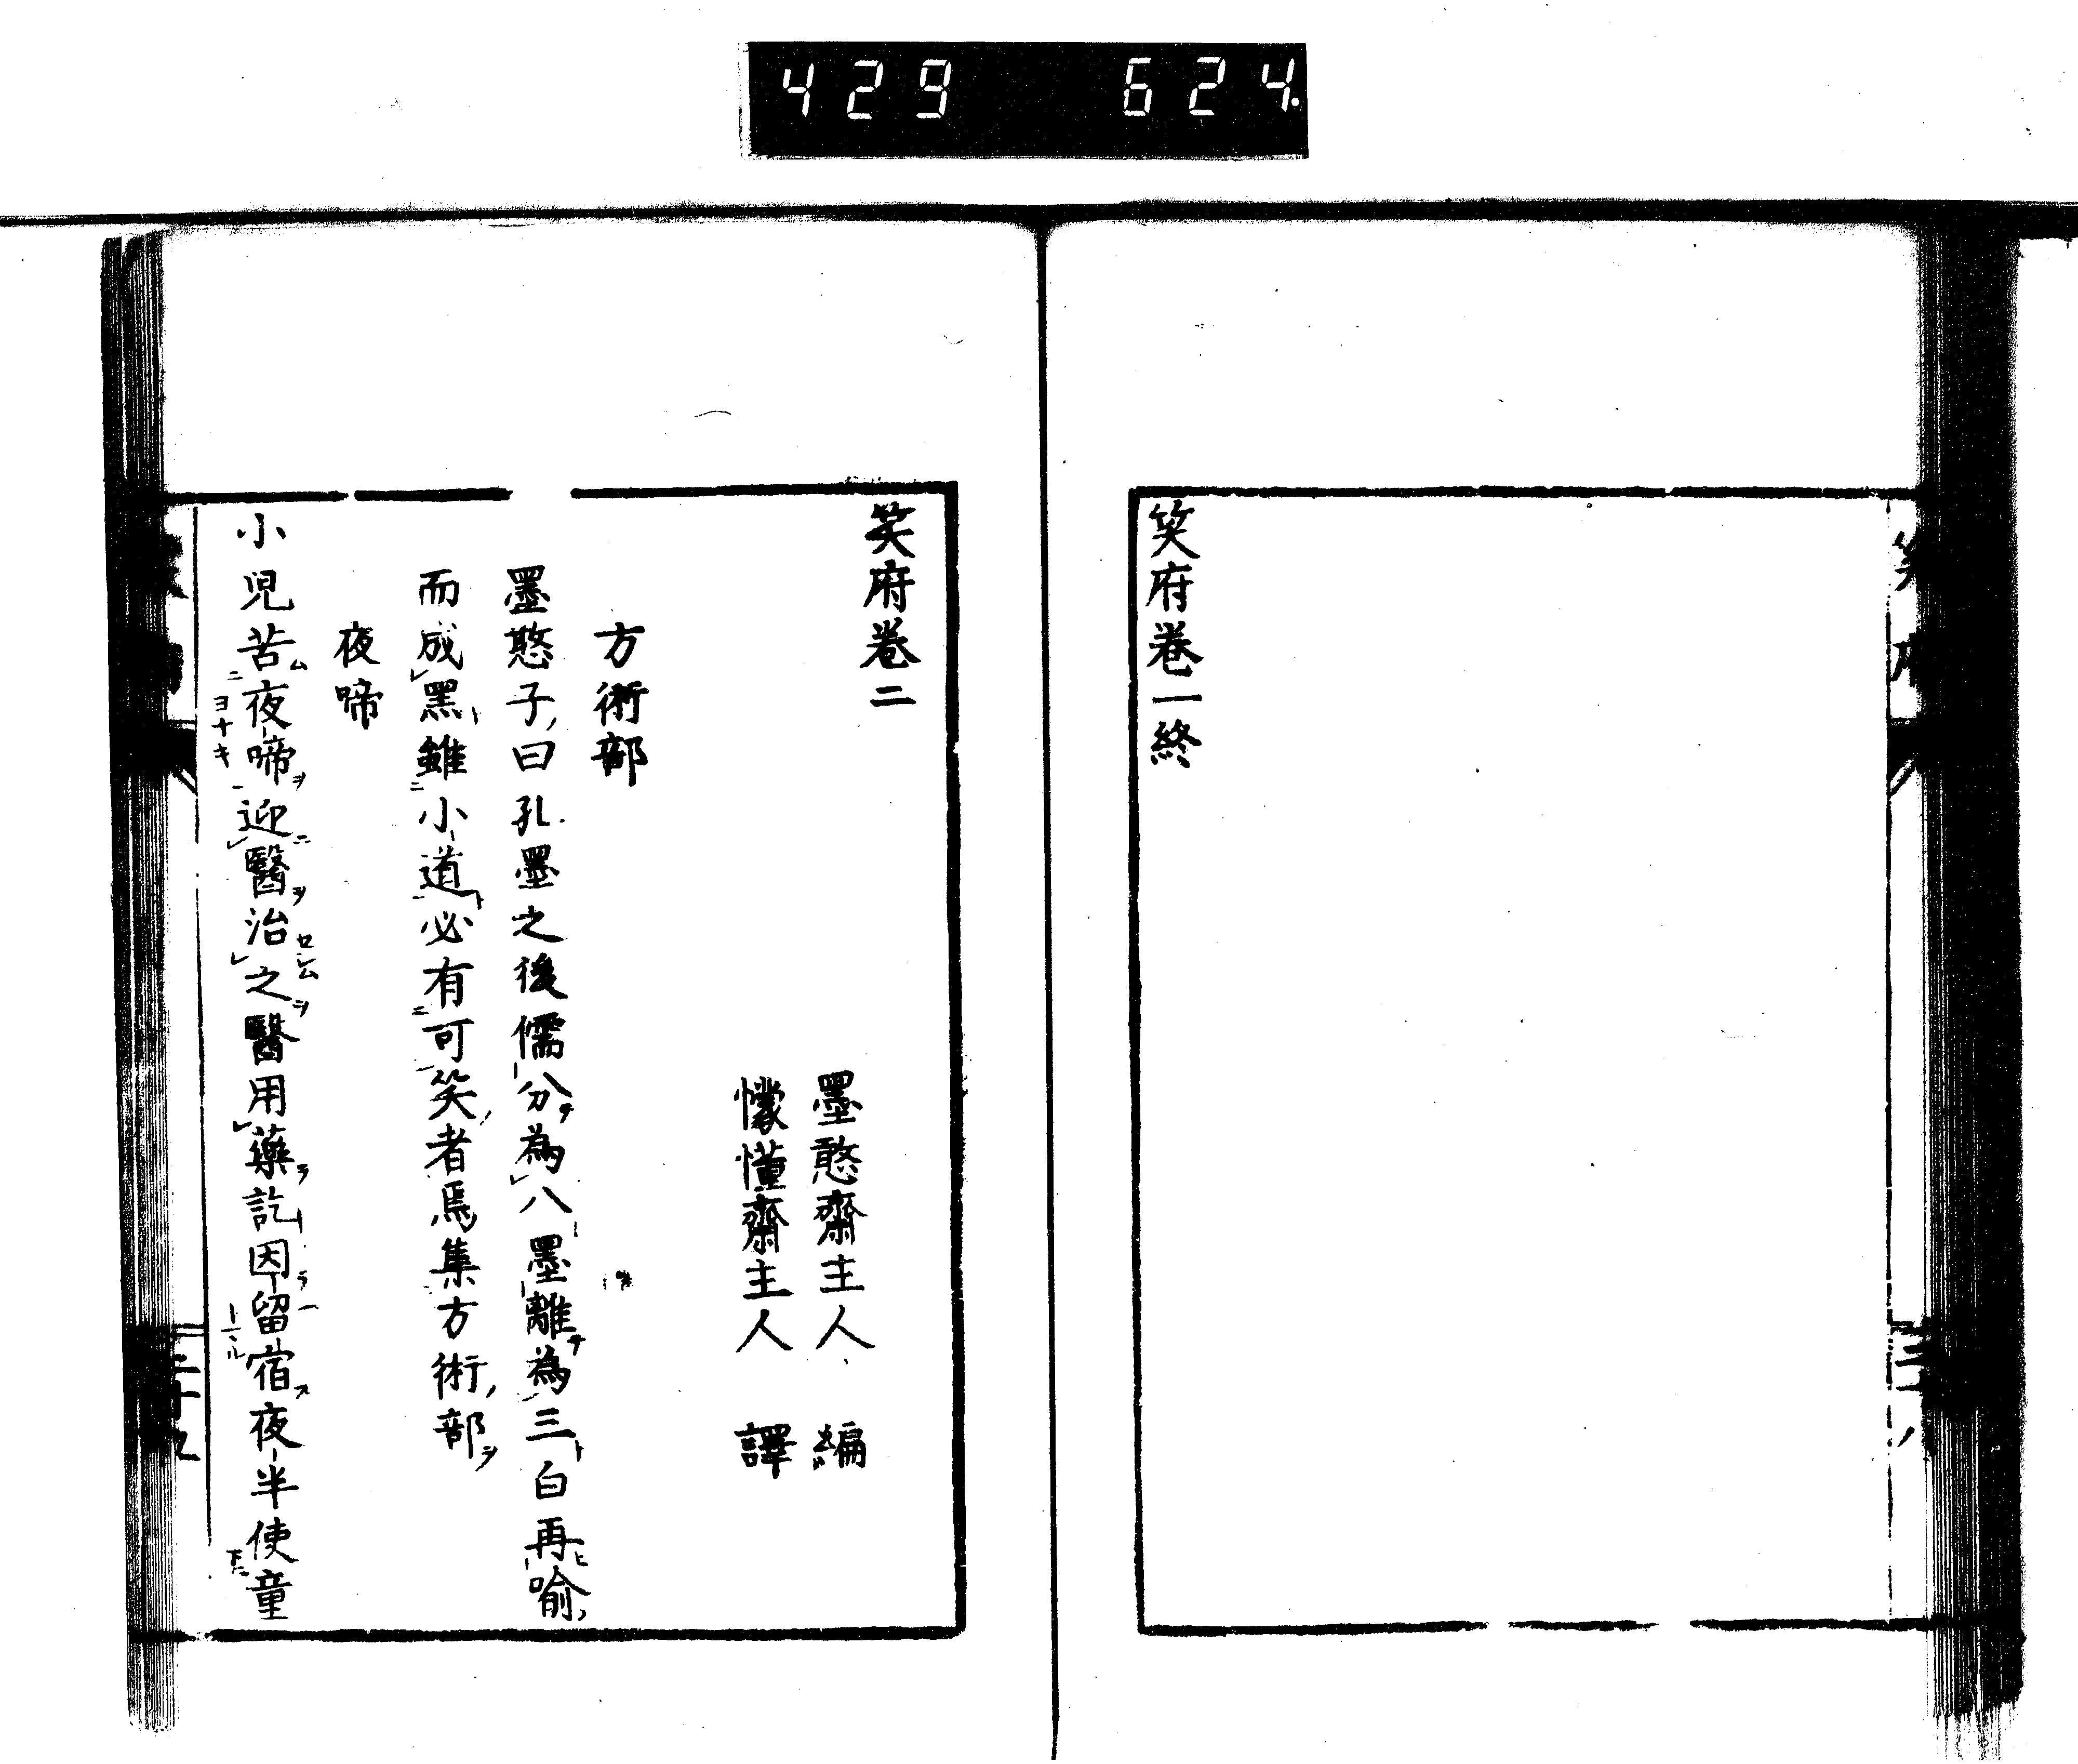 429 624.
笑府卷一終
笑府卷二
墨憨齋主人 編
懞懂齋主人 譯
方術部
墨憨子曰孔墨之後儒分為八墨離為三白再喻
而成黑雖小道必有可笑者焉集方術部
夜啼
小児苦夜啼迎醫治之醫用藥訖因留宿夜半使童
ヨナキ